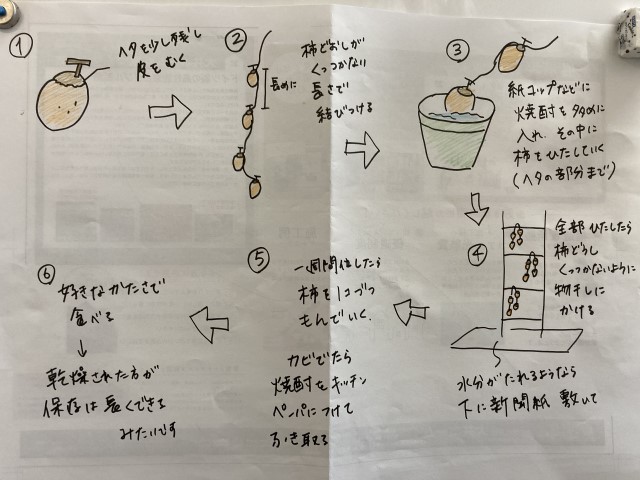 ①
ヘタを少し残し
皮をむく
②
柿どおしが
くっつかない
長さで
結びつける
長めに
③
紙コップなどに
焼酎を多めに
入れ、その中に
柿をひたしていく
(ヘタの部分まで)
④
全部ひたしたら
柿どうし
くっつかないように
物干しに
かける
水分がたれるようなら
下に新聞紙敷いて
⑤
一週間位したら
柿を1コづつ
もんでいく.
カビでたら
焼酎をキッチン
ペーパーにつけて
ふき取る
⑥
好きなかたさで
食べる
↓
乾燥された方が
保存は長くできる
みたいです